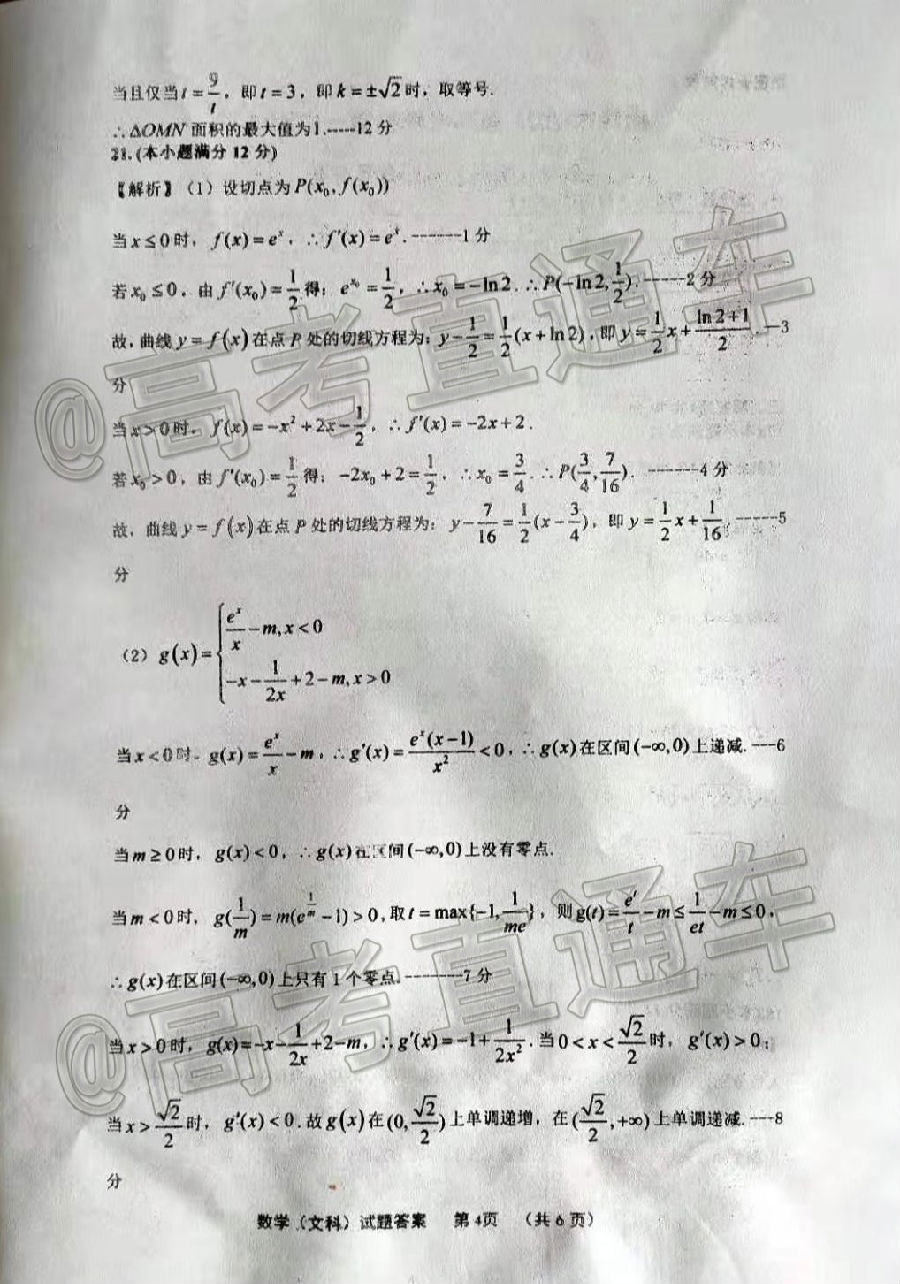 当且仅当t=9/t，即t=3，即k=±√2时，取等号.
∴ΔOMN面积的最大值为1.-----12分
21.(本小题满分12分)
【解析】（1）设切点为P(x₀, f(x₀))
当x≤0时，f(x)=eˣ，∴f′(x)=eˣ.-------1分
若x₀≤0，由f′(x₀)=1/2得：e^(x₀)=1/2，∴x₀=-ln2.∴P(-ln2,1/2).------2分
故，曲线y=f(x)在点P处的切线方程为：y-1/2=1/2(x+ln2)，即y=1/2x+(ln2+1)/2.---3
分
当x>0时，f(x)=-x²+2x-1/2，∴f′(x)=-2x+2.
若x₀>0，由f′(x₀)=1/2得：-2x₀+2=1/2，∴x₀=3/4.∴P(3/4,7/16).-------4分
故，曲线y=f(x)在点P处的切线方程为：y-7/16=1/2(x-3/4)，即y=1/2x+1/16.-----5
分
（2）g(x)={eˣ/x-m,x<0
-x-1/(2x)+2-m,x>0
当x<0时，g(x)=eˣ/x-m，∴g′(x)=eˣ(x-1)/x²<0，∴g(x)在区间(-∞,0)上递减.---6
分
当m≥0时，g(x)<0，∴g(x)在区间(-∞,0)上没有零点.
当m<0时，g(1/m)=m(e^(1/m)-1)>0,取t=max{-1,1/(me)}，则g(t)=eᵗ/t-m≤1/(et)-m≤0，
∴g(x)在区间(-∞,0)上只有1个零点.--------7分
当x>0时，g(x)=-x-1/(2x)+2-m，∴g′(x)=-1+1/(2x²).当0<x<√2/2时，g′(x)>0；
当x>√2/2时，g′(x)<0.故g(x)在(0,√2/2)上单调递增，在(√2/2,+∞)上单调递减.---8
分
数学（文科）试题答案 第4页 （共6页）
@高考直通车
@高考直通车